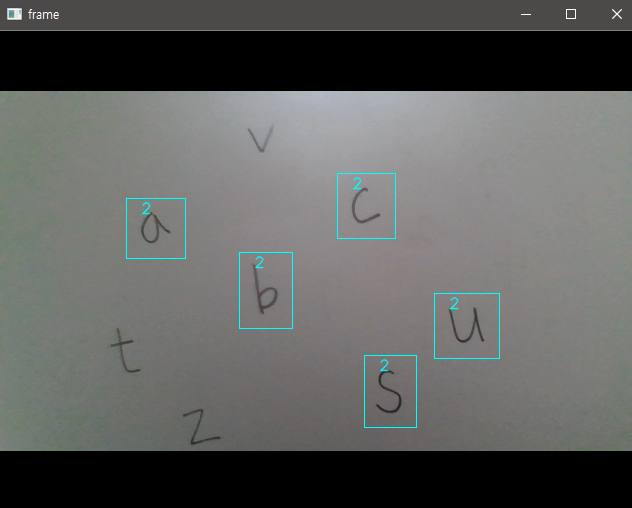 frame
v
2
c
2
a
2
b
2
u
t
2
s
z